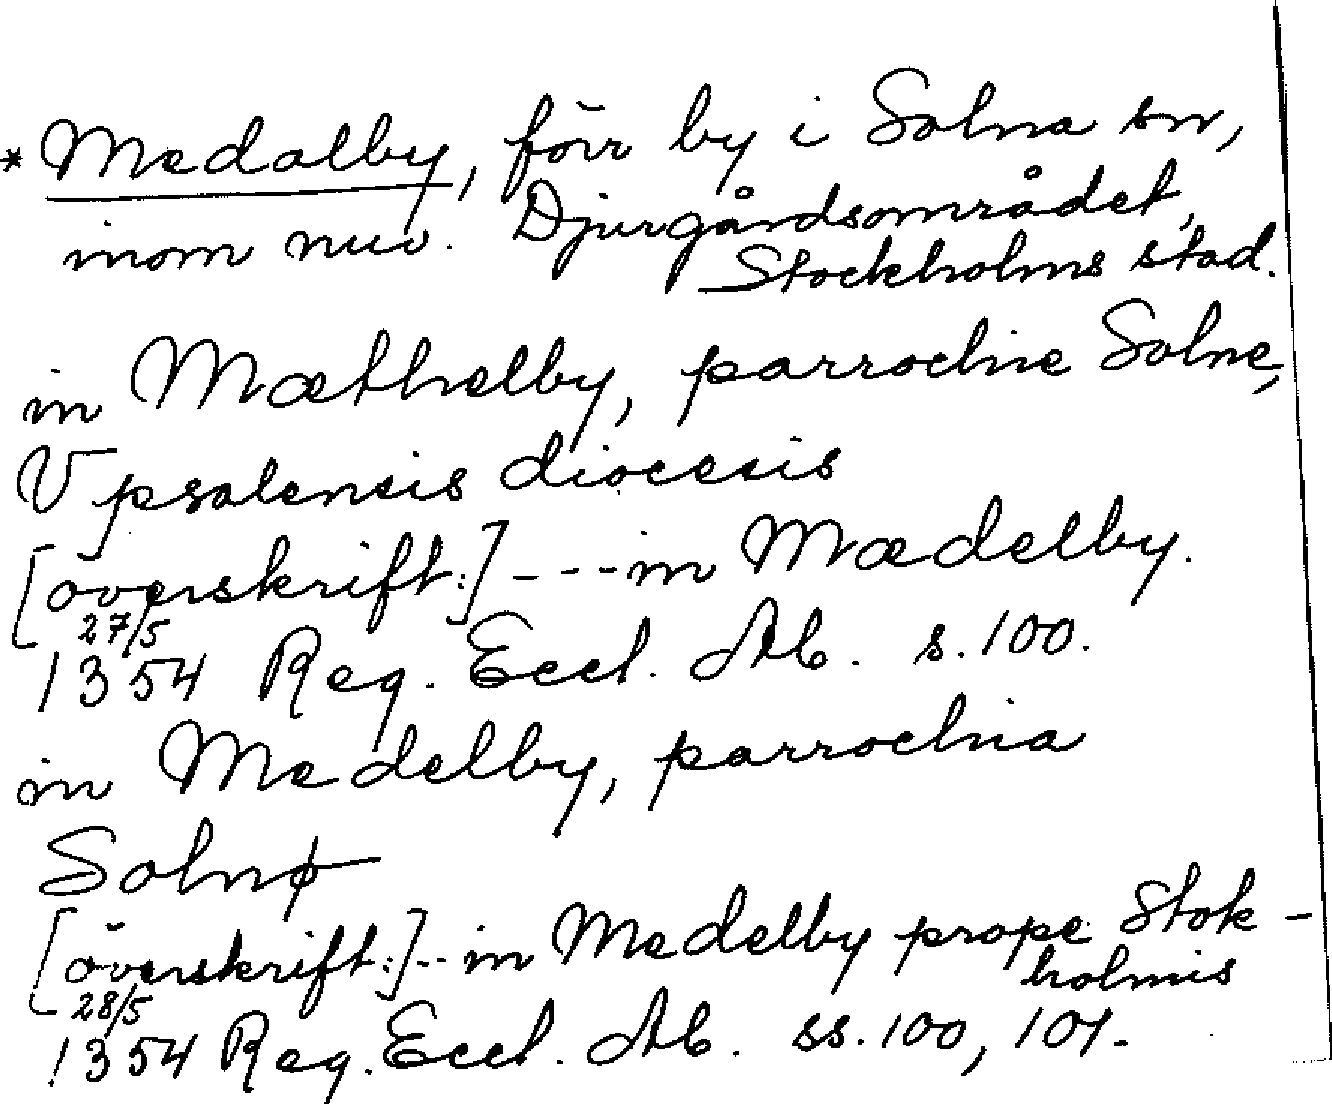 * Medalby, förr by i Solna sn,
inom nuv. Djurgårdsområdet,
Stockholms stad.
in Mæthelby, parrochie Solne,
Vpsalensis diocesis
[överskrift:] - - - in Mædelby.
27/5
1354 Reg. Eccl. Ab. s. 100.
in Medelby, parrochia
Solnø
[överskrift:] - - in Medelby prope Stok-
holmis
28/5
1354 Reg. Eccl. Ab. ss. 100, 101.